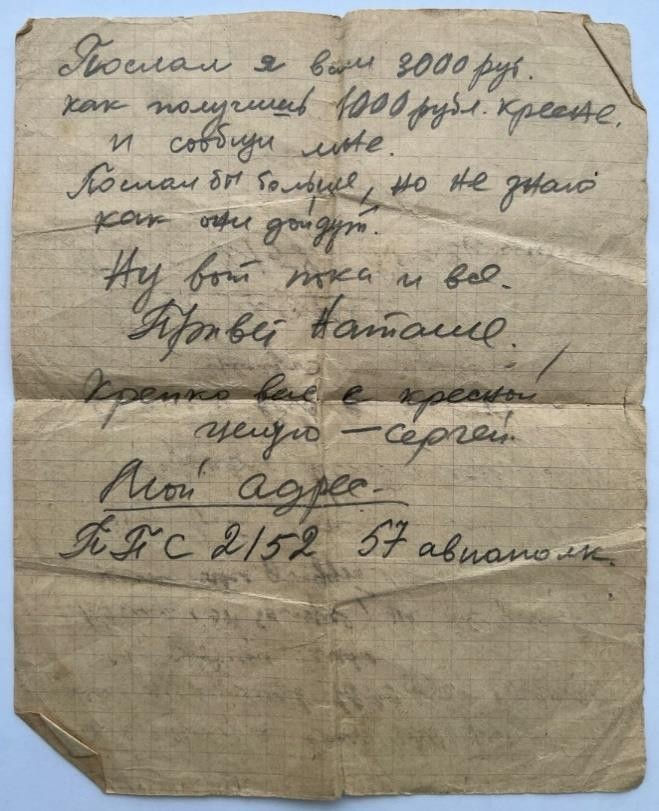 Послал я вам 3000 руб.
как получишь 1000 рубл. кресне.
и сообщи мне.
Послал бы больше, но не знаю
как они дойдут.
Ну вот пока и всё.
Привет Наташе.
Крепко вас с кресной
целую — Сергей.
Мой адрес.
ППС 2152 57 авиаполк.